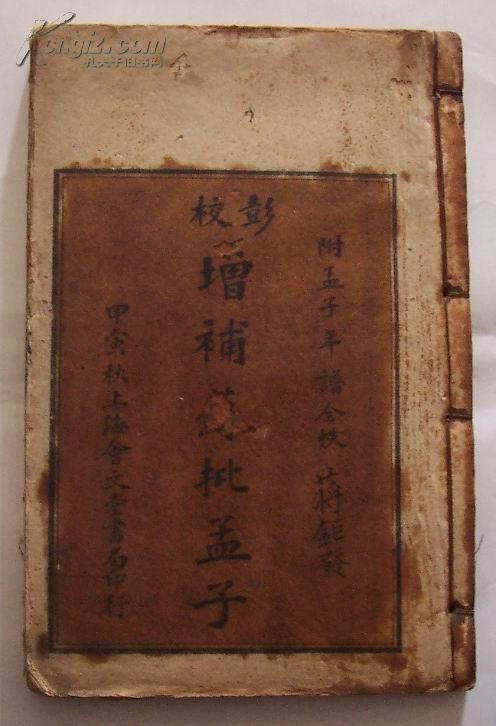 Kongfz.com
孔夫子旧书网
全
彭校
增補蘇批孟子
附孟子年譜全帙
蔣鉅發
甲寅秋上海會文堂書局印行